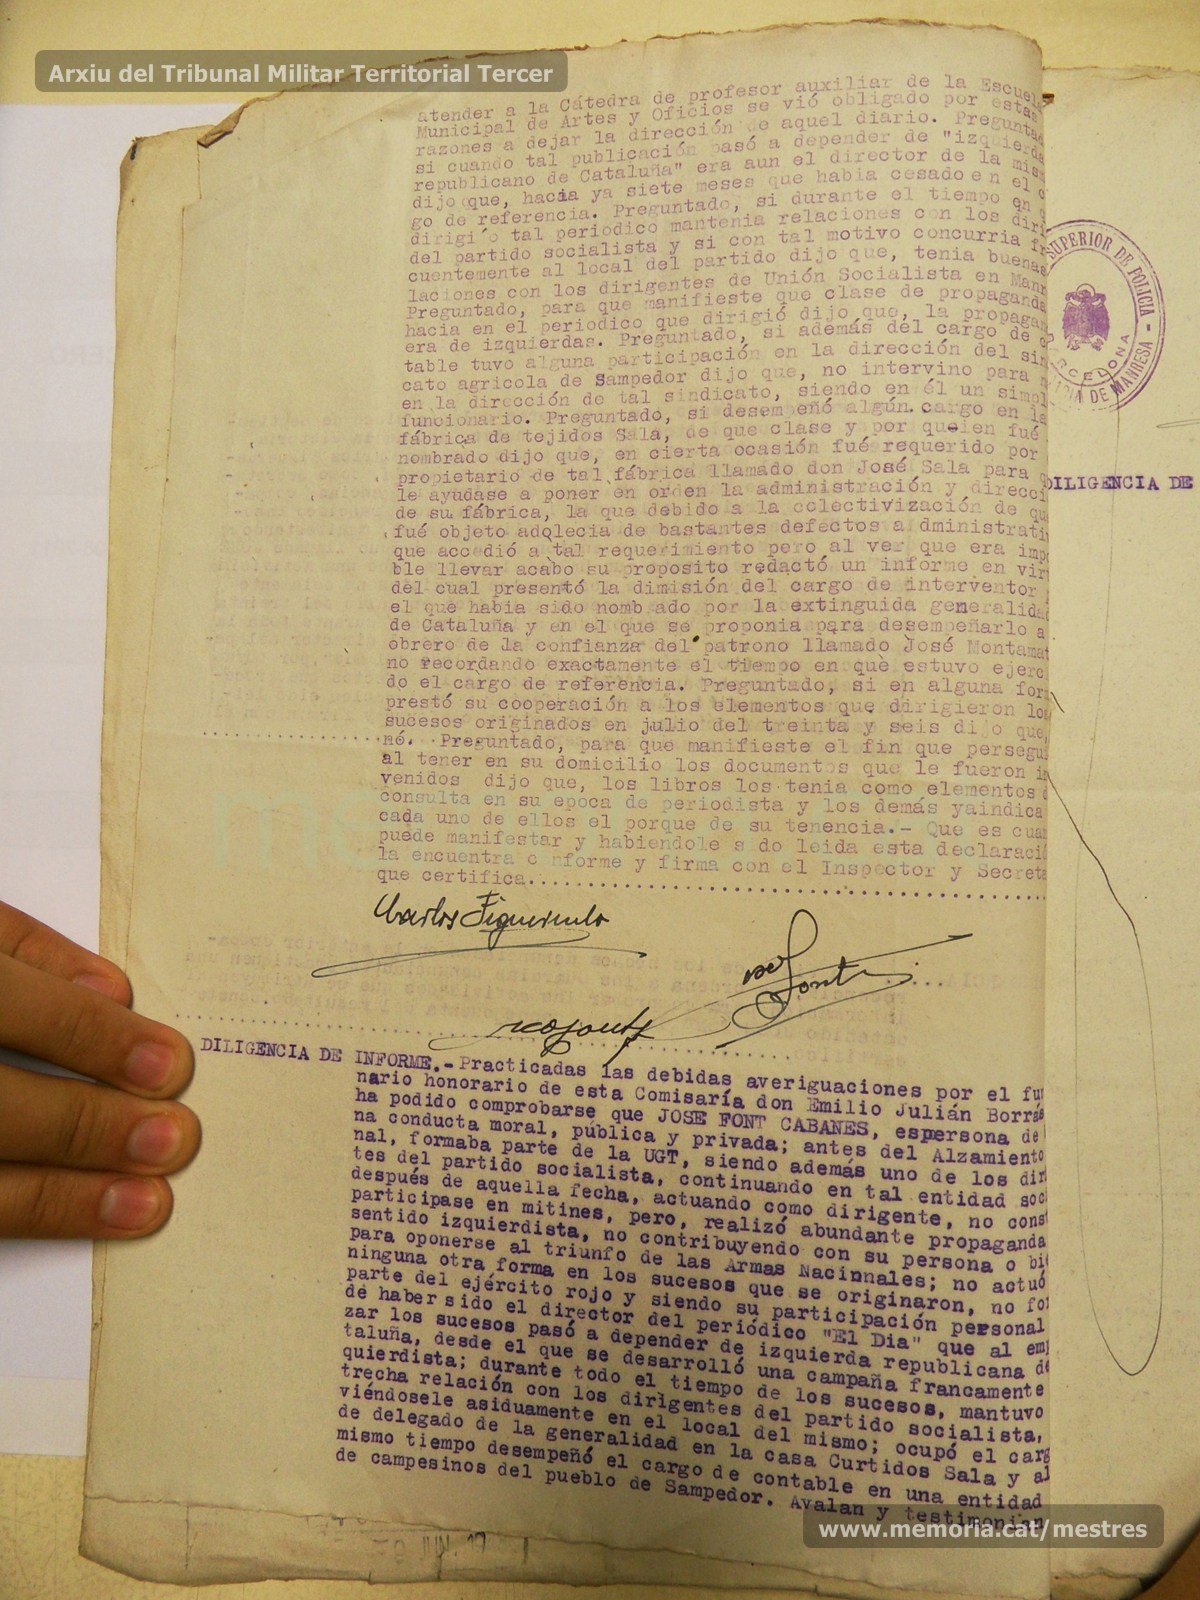 Arxiu del Tribunal Militar Territorial Tercer
atender a la Cátedra de profesor auxiliar de la Escuela
Municipal de Artes y Oficios se vió obligado por estas
razones a dejar la dirección de aquel diario. Preguntad
si cuando tal publicación pasó a depender de "izquierda
republicano de Cataluña" era aun el director de la mism
dijo que, hacia ya siete meses que habia cesado en el c
go de referencia. Preguntado, si durante el tiempo en q
dirigió tal periodico mantenia relaciones con los diri
del partido socialista y si con tal motivo concurria fr
cuentemente al local del partido dijo que, tenia buenas
laciones con los dirigentes de Unión Socialista en Manr
Preguntado, para que manifieste que clase de propaganda
hacia en el periodico que dirigió dijo que, la propagan
era de izquierdas. Preguntado, si además del cargo de c
table tuvo alguna participación en la dirección del sin
cato agricola de Sampedor dijo que, no intervino para n
en la dirección de tal sindicato, siendo en él un simpl
funcionario. Preguntado, si desempeñó algún.cargo en la
fábrica de tejidos Sala, de que clase y por queien fué
nombrado dijo que, en cierta ocasión fué requerido por
propietario de tal fábrica llamado don José Sala para q
le ayudase a poner en orden la administración y direcci
de su fábrica, la que debido a la colectivización de qu
fué objeto adolecia de bastantes defectos administrati
que accedió a tal requerimiento pero al ver que era imp
ble llevar acabo su proposito redactó un informe en vir
del cual presentó la dimisión del cargo de interventor
el que habia sido nomb ado por la extinguida generalida
de Cataluña y en el que se proponia para desempeñarlo a
obrero de la confianza del patrono llamado José Montama
no recordando exactamente el tiempo en què estuvo ejerc
do el cargo de referencia. Preguntado, si en alguna for
prestó su cooperación a los elementos que dirigieron lo
sucesos originados en julio del treinta y seis dijo que,
nó. Preguntado, para que manifieste el fin que persegui
al tener en su domicilio los documentos que le fueron in
venidos dijo que, los libros los tenia como elementos
consulta en su epoca de periodista y los demás yaindica
cada uno de ellos el porque de su tenencia.- Que es cuan
puede manifestar y habiendole s do leida esta declaraci
la encuentra c nforme y firma con el Inspector y Secreta
que certifica..........................................
SUPERIOR DE POLICIA -
BARCELONA
DE MANRESA
DILIGENCIA DE
José Font
DILIGENCIA DE INFORME.- Practicadas las debidas averiguaciones por el fun
nario honorario de esta Comisaría don Emilio Julián Borrás
ha podido comprobarse que JOSE FONT CABANES, espersona de
na conducta moral, pública y privada; antes del Alzamiento
nal, formaba parte de la UGT, siendo además uno de los dir
tes del partido socialista, continuando en tal entidad soc
después de aquella fecha, actuando como dirigente, no cons
participase en mitines, pero, realizó abundante propaganda
sentido izquierdista, no contribuyendo con su persona o bi
para oponerse al triunfo de las Armas Nacinnales; no actuó
ninguna otra forma en los sucesos que se originaron, no fo
parte del ejército rojo y siendo su participación personal
de haber sido el director del periódico "El Dia" que al em
zar los sucesos pasó a depender de izquierda republicana de
taluña, desde el que se desarrolló una campaña francamente
quierdista; durante todo el tiempo de los sucesos, mantuvo
trecha relación con los dirigentes del partido socialista,
viéndosele asiduamente en el local del mismo; ocupó el carg
de delegado de la generalidad en la casa Curtidos Sala y al
mismo tiempo desempeñó el cargo de contable en una entidad
de campesinos del pueblo de Sampedor. Avalan y testimonian
www.memoria.cat/mestres